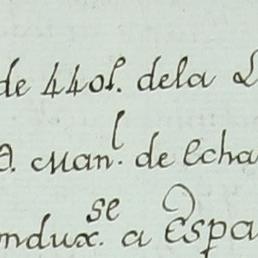 de 440l. dela
D. Man.l de Echa
ondux.se a Espa